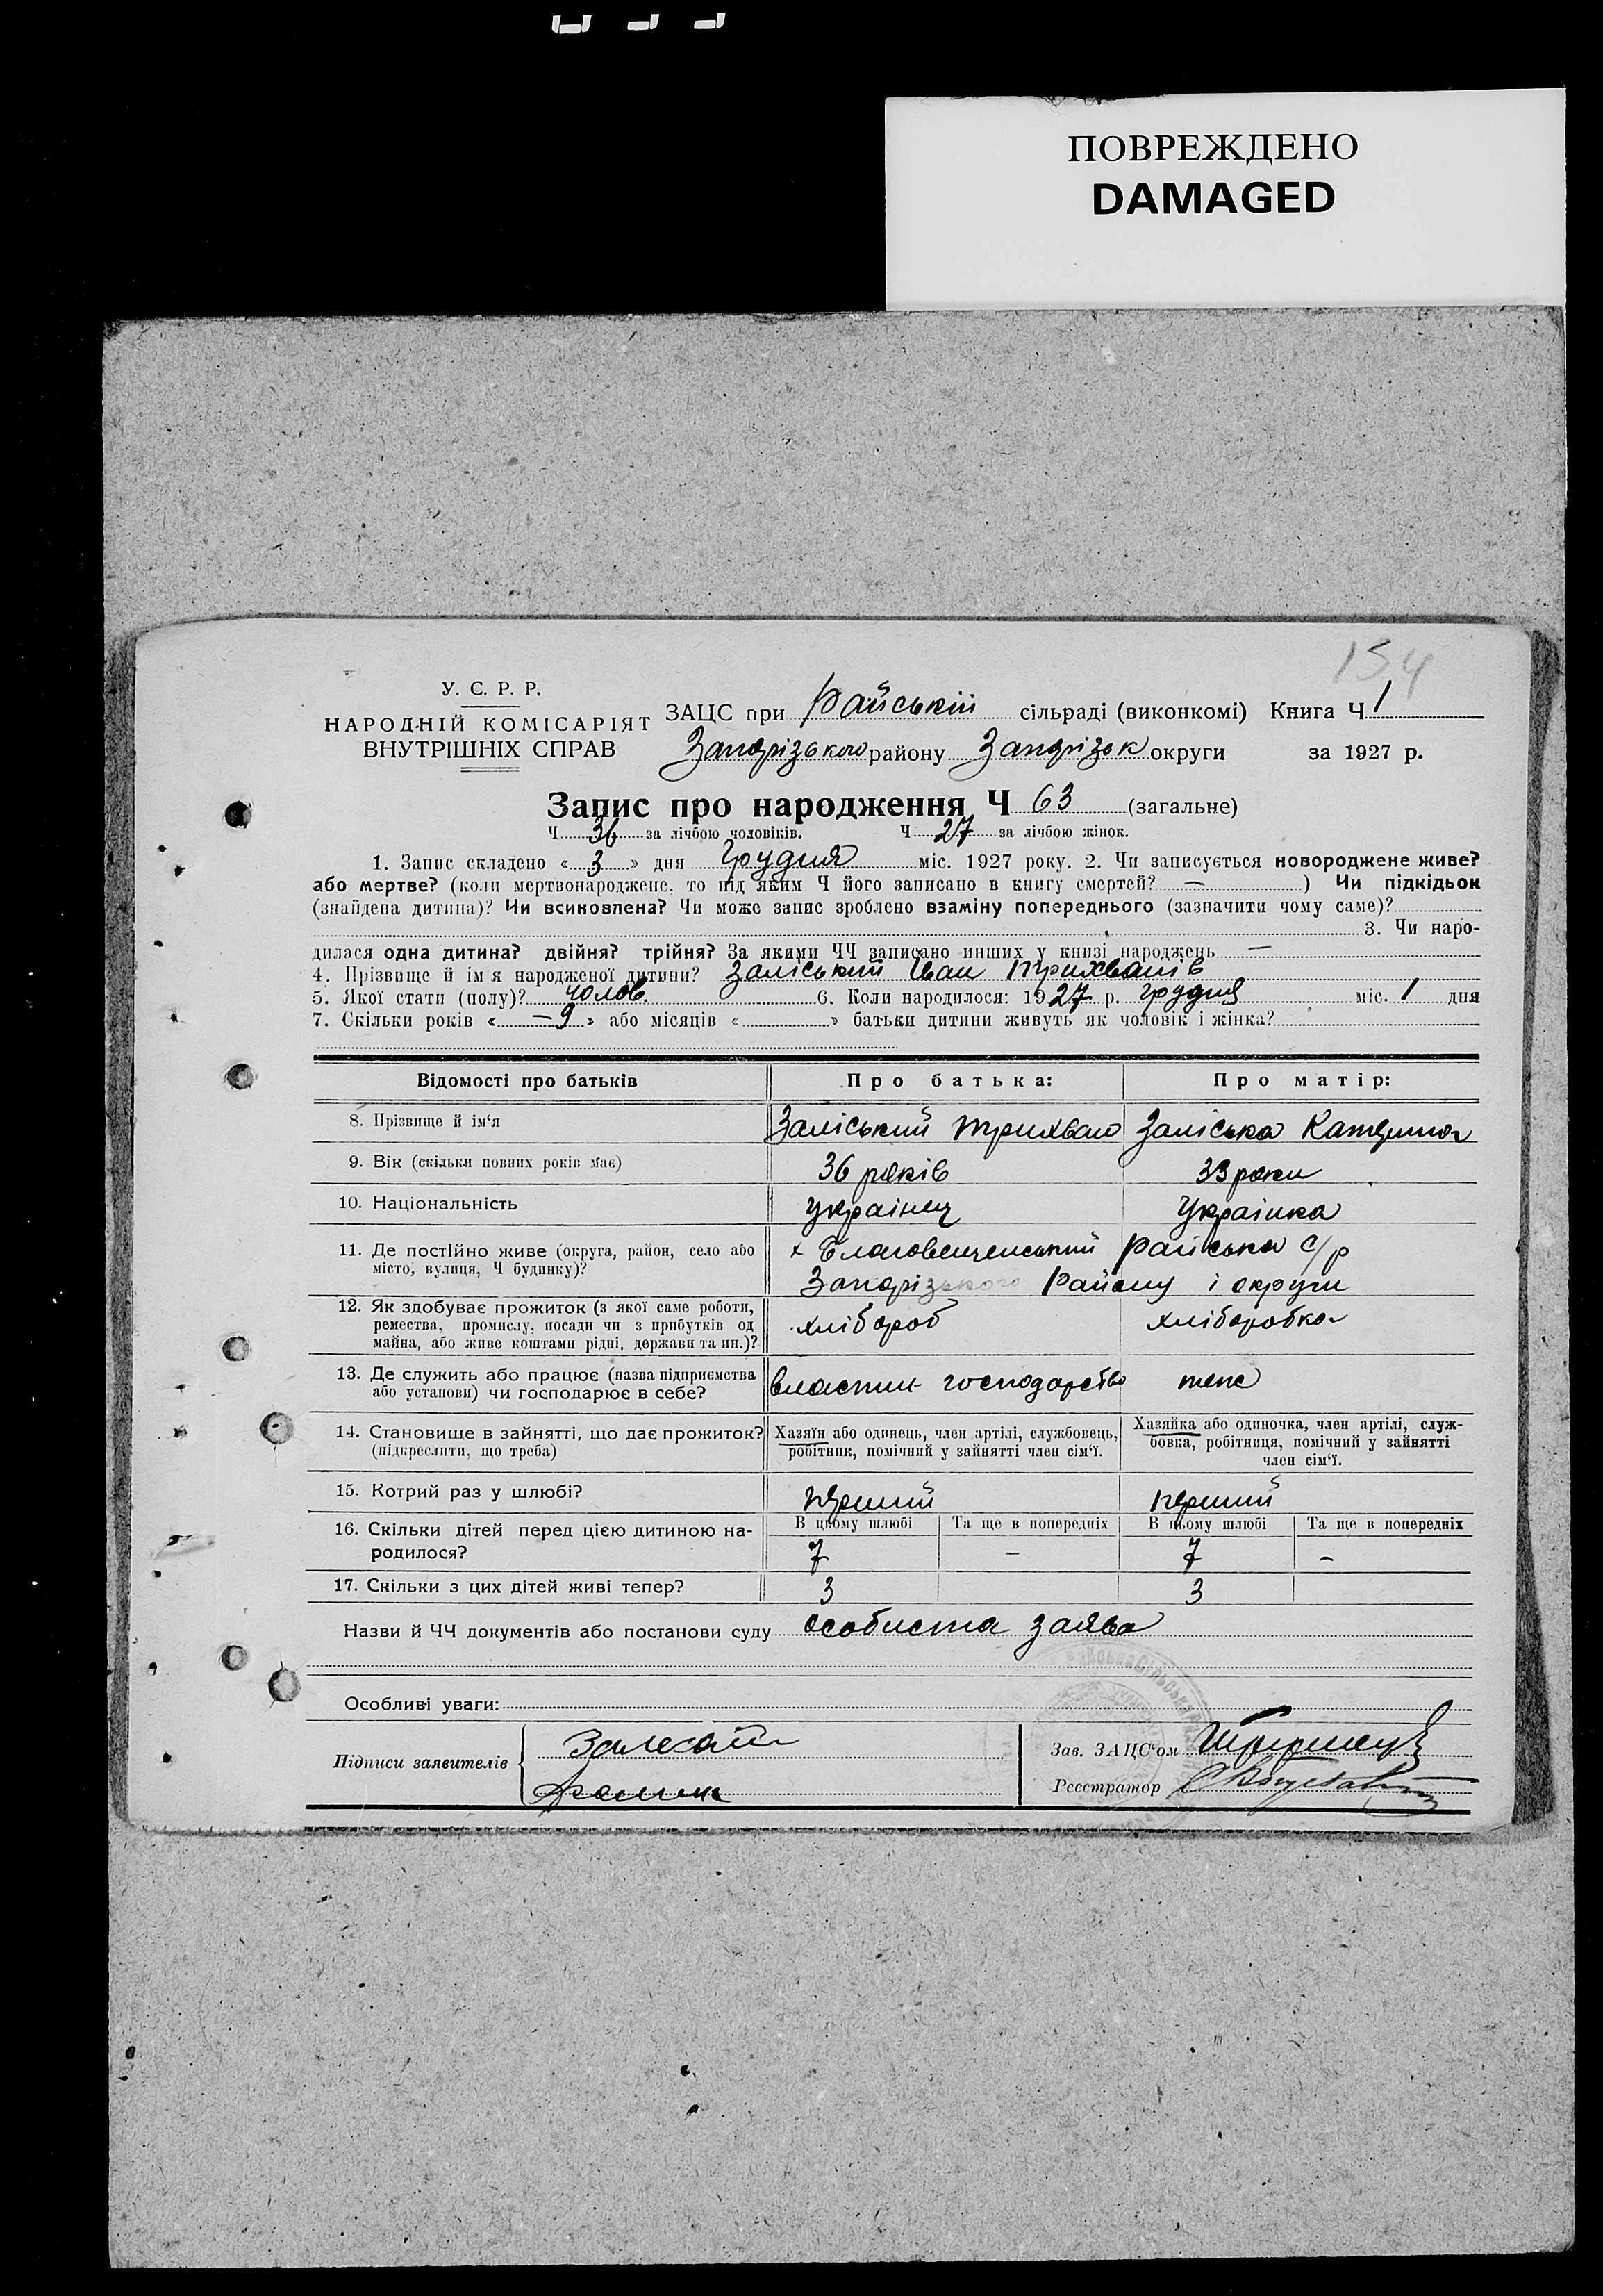 ПОВРЕЖДЕНО
DAMAGED
154
У. С. Р. Р.
НАРОДНІЙ КОМІСАРІЯТ
ВНУТРІШНІХ СПРАВ
ЗАЦС при Райській сільраді (виконкомі) Книга Ч 1
Запорізького району Запоріzьк округи за 1927 р.
Запис про народження Ч 63 (загальне)
Ч 36 за лічбою чоловіків. Ч 27 за лічбою жінок.
1. Запис складено « 3 » дня Грудня міс. 1927 року. 2. Чи записується новороджене живе?
або мертве? (коли мертвонароджене, то під яким Ч його записано в книгу смертей? — ) Чи підкідьок
(знайдена дитина)? Чи всиновлена? Чи може запис зроблено взаміну попереднього (зазначити чому саме)?
3. Чи наро-
дилася одна дитина? двійня? трійня? За якими ЧЧ записано инших у книзі народжень —
4. Прізвище й ім я народженої дитини? Заліський Іван Трихванів
5. Якої стати (полу)? чолов. 6. Коли народилося: 1927 р. грудня міс. 1 дня
7. Скільки років « — 9 » або місяців « » батьки дитини живуть як чоловік і жінка?
Відомості про батьків Про батька: Про матір:
8. Прізвище й ім‘я Заліський Трихван Заліська Катерина
9. Вік (скільки повних років має) 36 років 33 роки
10. Національність українец Українка
11. Де постійно живе (округа, район, село або х Благовещенський Райська с/р
місто, вулиця, Ч будинку)? Запорізького Району і округи
12. Як здобуває прожиток (з якої саме роботи,
ремества, промислу, посади чи з прибутків од хлібороб хліборобка
майна, або живе коштами рідні, держави та ин.)?
13. Де служить або працює (назва підприємства
або установи) чи господарює в себе? власни господарство теж
14. Становище в зайнятті, що дає прожиток? Хазяїн або одинець, член артілі, службовець, Хазяйка або одиночка, член артілі, служ-
(підкреслити, що треба) робітник, помічний у зайнятті член сім‘ї. бовка, робітниця, помічний у зайнятті
член сім‘ї.
15. Котрий раз у шлюбі? перший перший
16. Скільки дітей перед цією дитиною на- В цьому шлюбі Та ще в попередніх В цьому шлюбі Та ще в попередніх
родилося? 7 — 7 —
17. Скільки з цих дітей живі тепер? 3 3
Назви й ЧЧ документів або постанови суду особиста заява
Особливі уваги:
Підписи заявителів
Зав. ЗАЦС‘ом
Реєстратор